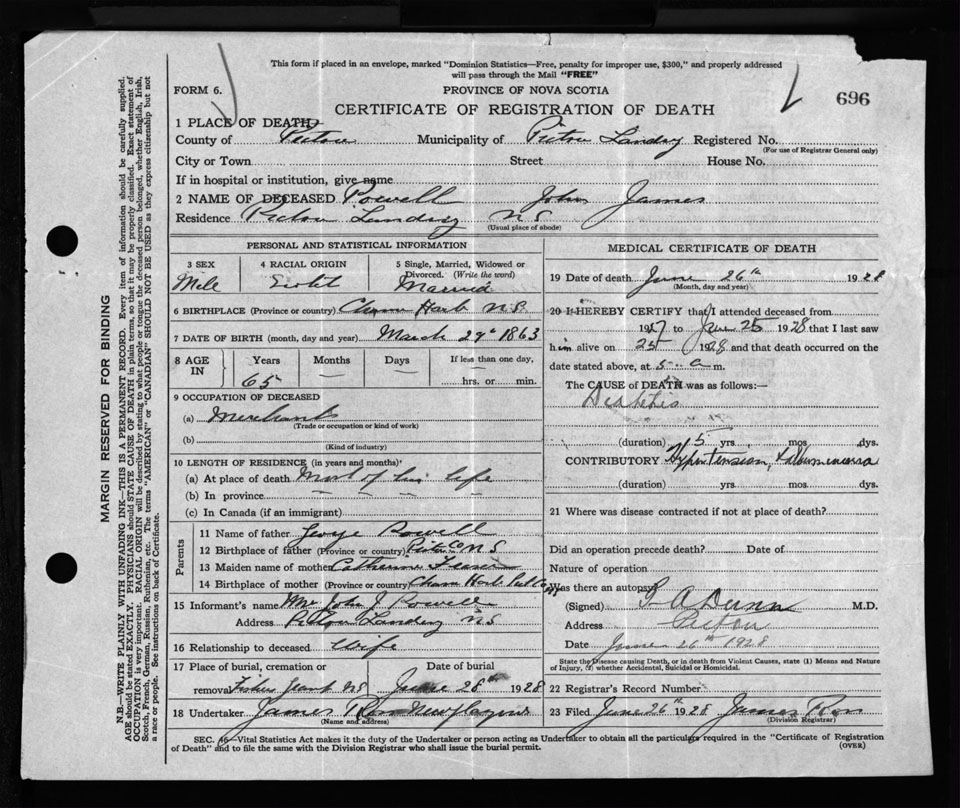 This form if placed in an envelope, marked "Dominion Statistics—Free, penalty for improper use, $300," and properly addressed
will pass through the Mail "FREE"
FORM 6.
PROVINCE OF NOVA SCOTIA
696
CERTIFICATE OF REGISTRATION OF DEATH
1 PLACE OF DEATH
County of Pictou Municipality of Pictou Landing Registered No.
(For use of Registrar General only)
City or Town Street House No.
If in hospital or institution, give name
2 NAME OF DECEASED Powell John James
Residence Pictou Landing N S
(Usual place of abode)
PERSONAL AND STATISTICAL INFORMATION
3 SEX 4 RACIAL ORIGIN 5 Single, Married, Widowed or
Divorced. (Write the word)
Male Married
6 BIRTHPLACE (Province or country) Harb N.S.
7 DATE OF BIRTH (month, day and year) March 29 1863
8 AGE IN Years Months Days If less than one day,
65 hrs. or min.
9 OCCUPATION OF DECEASED
(a) Merchant
(Trade or occupation or kind of work)
(b)
(Kind of industry)
10 LENGTH OF RESIDENCE (in years and months)
(a) At place of death Most of his life
(b) In province
(c) In Canada (if an immigrant)
Parents
11 Name of father George Powell
12 Birthplace of father (Province or country) Pictou N S
13 Maiden name of mother Catherine Fraser
14 Birthplace of mother (Province or country) Harb
15 Informant's name John J Powell
Address Pictou Landing N S
16 Relationship to deceased Wife
17 Place of burial, cremation or Date of burial
removal Fishers Grant NS June 28th 1928
18 Undertaker James Ross New Glasgow
(Name and address)
MEDICAL CERTIFICATE OF DEATH
19 Date of death June 26th 1928
(Month, day and year)
20 I HEREBY CERTIFY that I attended deceased from
1927 to June 25 1928 that I last saw
him alive on 25 1928 and that death occurred on the
date stated above, at 5 a m.
The CAUSE of DEATH was as follows:—
Diabetis
(duration) 5 yrs. mos. dys.
CONTRIBUTORY Hypertension,
(duration) yrs. mos. dys.
21 Where was disease contracted if not at place of death?
Did an operation precede death? Date of
Nature of operation
Was there an autopsy
(Signed) A Dunn M.D.
Address Pictou
Date June 26th 1928
State the Disease causing Death, or in death from Violent Causes, state (1) Means and Nature
of Injury, (2) whether Accidental, Suicidal or Homicidal.
22 Registrar's Record Number
23 Filed June 26th 1928 James Ross
(Division Registrar)
SEC. 46—Vital Statistics Act makes it the duty of the Undertaker or person acting as Undertaker to obtain all the particulars required in the "Certificate of Registration
of Death" and to file the same with the Division Registrar who shall issue the burial permit.
(OVER)
MARGIN RESERVED FOR BINDING
N.B.—WRITE PLAINLY WITH UNFADING INK—THIS IS A PERMANENT RECORD. Every item of information should be carefully supplied.
AGE should be stated EXACTLY. PHYSICIANS should STATE CAUSE OF DEATH in plain terms, so that it may be properly classified. Exact statement of
OCCUPATION is very important. RACIAL ORIGIN will be described by stating to what people or tongue the deceased person belonged, whether English, Irish,
Scotch, French, German, Russian, Ruthenian, etc. The terms "AMERICAN" or "CANADIAN" SHOULD NOT BE USED as they express citizenship but not
a race or people. See instructions on back of Certificate.